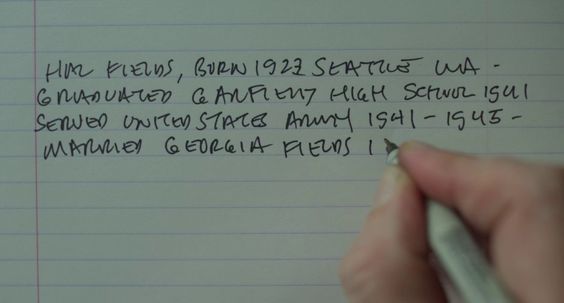 HAL FIELDS, BORN 1923 SEATTLE WA -
GRADUATED GARFIELD HIGH SCHOOL 1941
SERVED UNITED STATES ARMY 1941 - 1945 -
MARRIED GEORGIA FIELDS 1